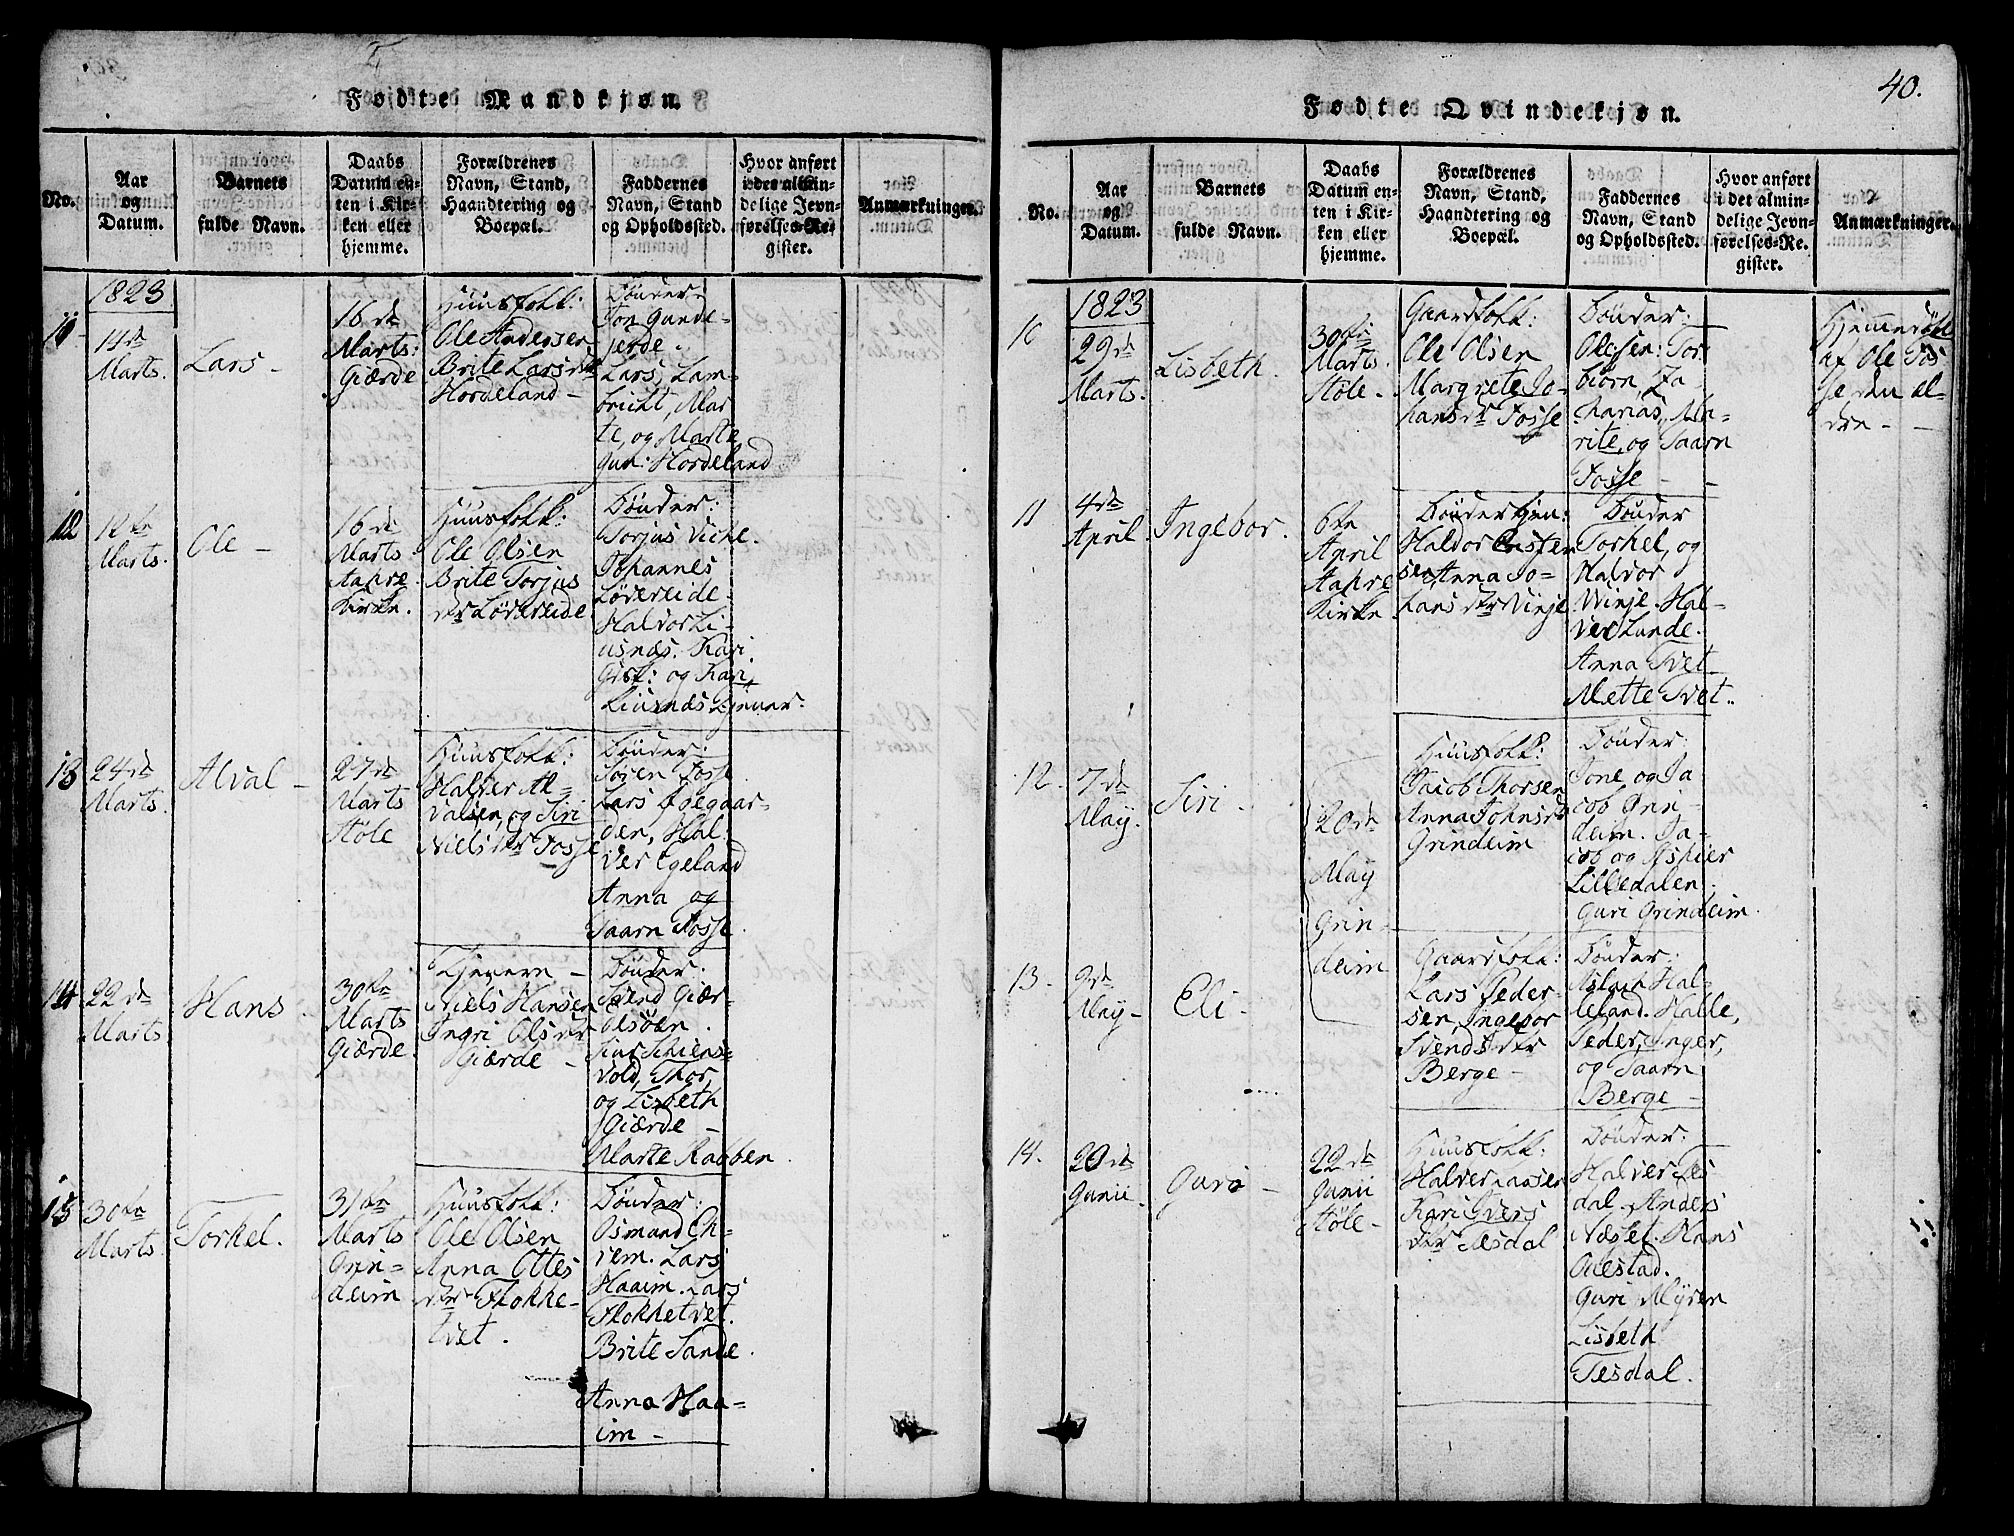 Fødte Mandkjøn.
No.
Aar
og
Datum.
Barnets
fulde Navn.
Daabs
Datum en-
ten i Kir-
ken eller
hjemme.
Forældrenes
Navn, Stand,
Haandtering og
Boepæl.
Faddernes
Navn, Stand
og Opholdssted.
Hvor anført
i det almin-
delige Jevn-
førelses-Re-
gister.
Anmærkninger.
1823
14de
Marts.
Lars -
16de
Marts:
Giærde
Huusfolk:
Ole Andersen
Brite Larsdr
Hordeland -
Bönder:
Jon Gunde-
jerde.
Lars, Lam-
bricht, Mar
te, og Marte
gun: Hordeland
12
12te
Marts.
Ole -
16de
Marts
Aahre
Kirke.
Huusfolk:
Ole Olsen
Brite Torjus
dr Lövereide
Bönder:
Torjus Viche.
Johannes
Lövereide.
Haldor Li-
usnæs. Kari
og Kari
Liusnæs
13
24de
Marts
Alval -
27de
Marts
Støle
Huusfolk:
Halver Al-
valsen, og Siri
Nielsdr Fosse
Bönder:
Sören Fosse
Lars
den, Hal-
ver Egeland
Anna og
Saarn Fosse.
14
22de
Marts
Hans.
30te
Marts
Giærde.
Niels Hansen
Ingri Olsdr
Giærde -
Bönder:
Svend Giær-
Siur Schiens-
vold, Thor
og Lisbeth
Giærde -
Marte Rabben.
15
30te
Marts.
Torkel.
31te
Marts
Grin-
deim
Huusfolk:
Ole Olsen
Anna Ottes
dr Flokke-
tvet.
Bönder:
Osmund En-
rem. Lars
Haaim. Lars
Flokketvet.
Brite Sande.
Anna Haa-
im -
40.
Fødte Qvindekjøn.
No.
Aar
og
Datum.
Barnets
fulde Navn.
Daabs
Datum en-
ten i Kir-
ken eller
hjemme.
Forældrenes
Navn, Stand,
Haandtering og
Boepæl.
Faddernes
Navn, Stand
og Opholdssted.
Hvor anført
i det almin-
delige Jevn-
førelses-Re-
gister.
Anmærkninger.
1823
10
29de
Marts.
Lisbeth.
30te
Marts.
Støle -
Gaardfolk:
Ole Olsen
Margrete Jo-
hansdr Fosse
Bönder:
Ole sen: Tor
biörn, Za-
charias, Ma-
rite, og Saarn
Fosse -
Hjemmedöbt
af Ole Fos
se den el-
dre -
11
4de
April
Ingebor.
6te
April
Aahre
Kirke.
Haldor
sen, Anna Jo-
hansdr Vinje
Bönder
Torkel, og
Haldor
Vinje. Hal-
ver Lunde.
Anna Tvet
Mette Tvet.
12.
7de
May.
Siri -
20de
May
Grin-
deim
Huusfolk:
Jacob Thorsen
Anna Johnsdr
Grindeim
Bönder:
Jone og Ja
cob Grin-
deim. Ja-
cob og
Lilledalen.
Guri Grindeim.
13.
9de
May -
Eli -
Gaardfolk:
Lars Peder-
sen, Ingebor
Svendsdr
Berge -
Bönder:
Aslach Hal-
leland. Halle,
Peder, Inger,
og Saarn
Berge -
14.
20de
Junii
Guro -
22de
Junii
Støle -
Huusfolk:
Halver Larsen
Kari Ivers
dr Tesdal
Bönder:
Halver Tes
dal. Anders
Næset. Hans
Guri Myren
Lisbeth
Tesdal.